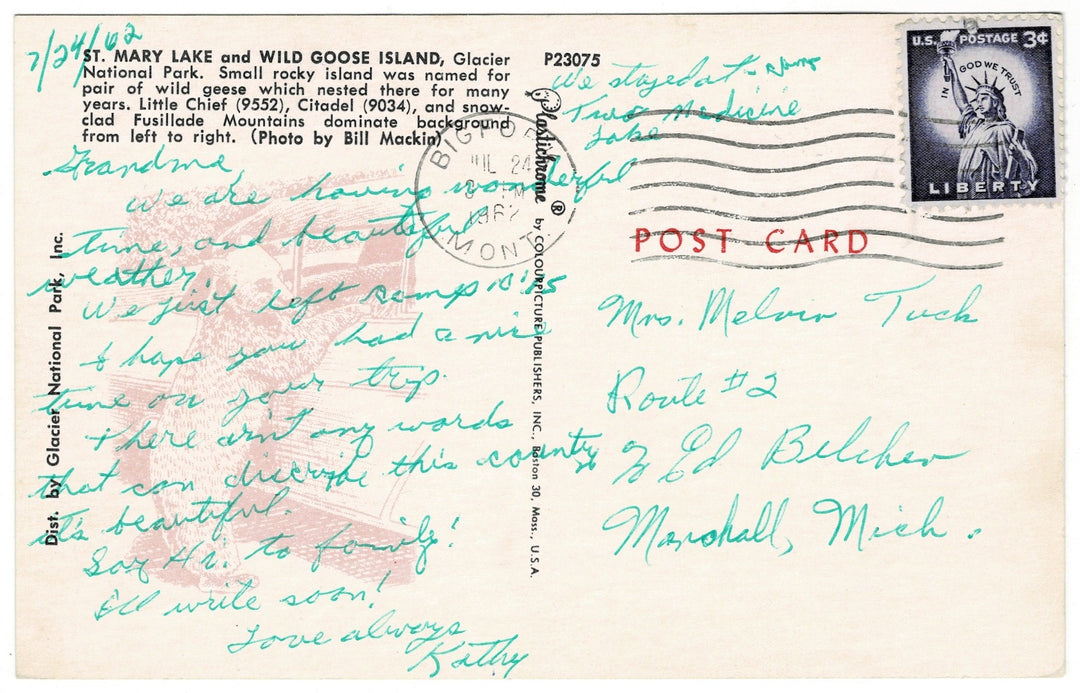 7/24/62
ST. MARY LAKE and WILD GOOSE ISLAND, Glacier
National Park. Small rocky island was named for
pair of wild geese which nested there for many
years. Little Chief (9552), Citadel (9034), and snow-
clad Fusillade Mountains dominate background
from left to right. (Photo by Bill Mackin)
Grandma,
We are having wonderful
time, and beautiful
weather.
We just left camp 10:15
I hope you had a nice
time on your trip.
there arn't any words
that can discribe this country
it's beautiful.
Say Hi! to family!
I'll write soon!
Love always
Kathy
Dist. by Glacier National Park, Inc.
P23075
We stayed at
Two Medicine
Lake
Plastichrome ® by COLOURPICTURE PUBLISHERS, INC., Boston 30, Mass., U.S.A.
BIGFORK
JUL 24
PM
1962
MONT.
U.S. POSTAGE 3¢
IN GOD WE TRUST
LIBERTY
POST CARD
Mrs. Melvin Tuck
Route #2
% Ed Belcher
Marshall, Mich.